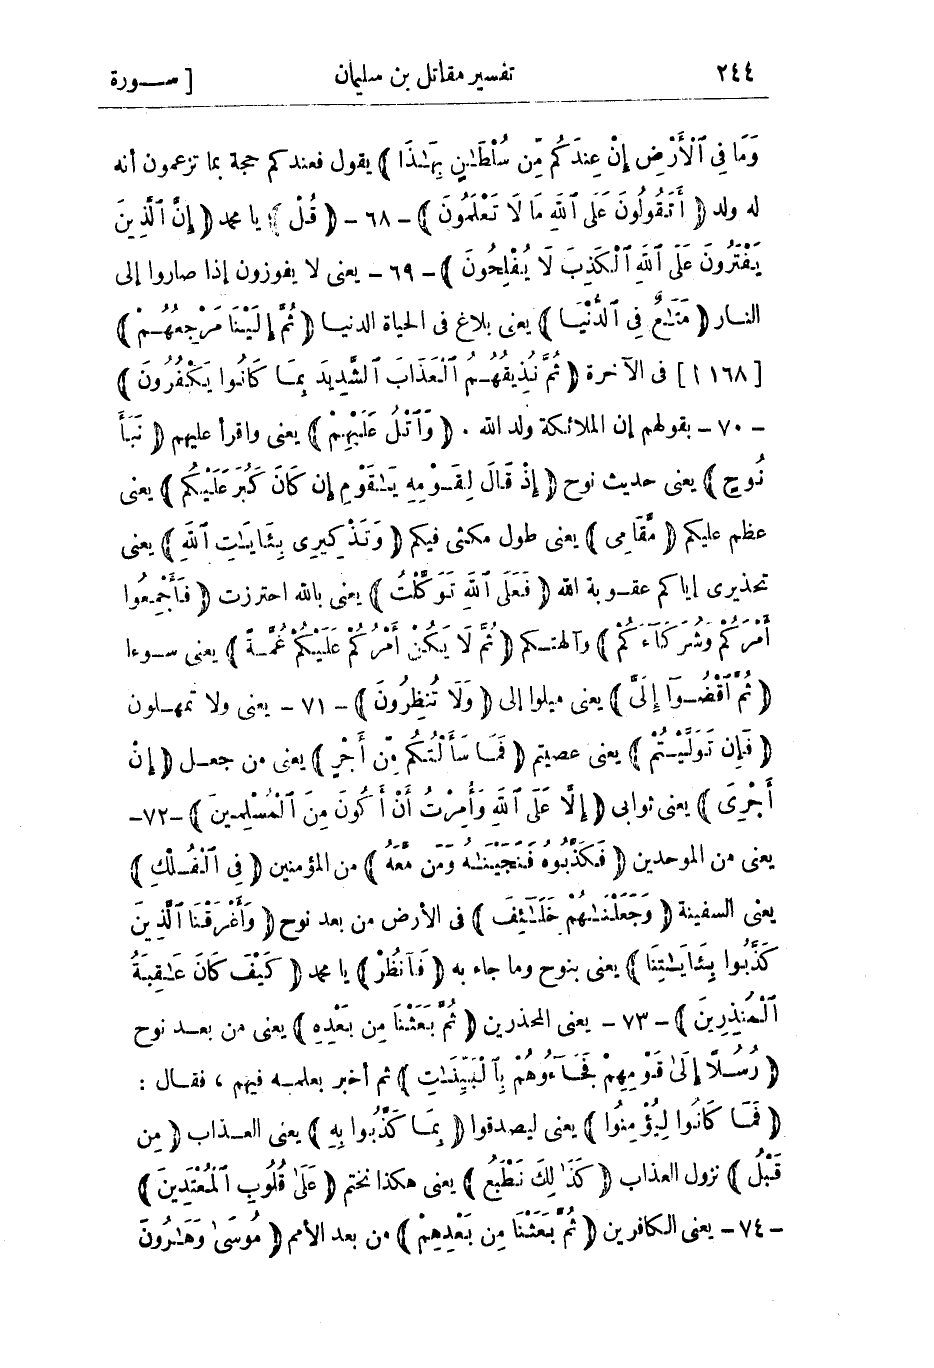 ٢٤٤ تفسير مقاتل بن سليمان [ ســـورة
وَمَا فِي ٱلْأَرْضِ إِنْ عِندَكُم مِّن سُلْطَـٰنٍ بِهَـٰذَآ ﴾ يقول فعندكم حجة بما تزعمون أنه
له ولد ﴿ أَتَقُولُونَ عَلَى ٱللَّهِ مَا لَا تَعْلَمُونَ ﴾ - ٦٨ - ﴿ قُلْ ﴾ يا محمد ﴿ إِنَّ ٱلَّذِينَ
يَفْتَرُونَ عَلَى ٱللَّهِ ٱلْكَذِبَ لَا يُفْلِحُونَ ﴾ - ٦٩ - يعنى لا يفوزون إذا صاروا إلى
النـار ﴿ مَتَـٰعٌ فِي ٱلدُّنْيَـا ﴾ يعنى بلاغ فى الحياة الدنيـا ﴿ ثُمَّ إِلَيْنَا مَرْجِعُهُـمْ ﴾
[ ١٦٨ أ ] فى الآخرة ﴿ ثُمَّ نُذِيقُهُـمُ ٱلْعَذَابَ ٱلشَّدِيدَ بِمَـا كَانُوا يَكْفُرُونَ ﴾
- ٧٠ - بقولهم إن الملائكة ولد الله . ﴿ وَٱتْلُ عَلَيْهِمْ ﴾ يعنى واقرأ عليهم ﴿ نَبَأَ
نُوحٍ ﴾ يعنى حديث نوح ﴿ إِذْ قَالَ لِقَـوْمِهِ يَـٰقَوْمِ إِن كَانَ كَبُرَ عَلَيْكُم ﴾ يعنى
عظم عليكم ﴿ مَّقَامِى ﴾ يعنى طول مكثى فيكم ﴿ وَتَذْكِيرِى بِـَٔايَـٰتِ ٱللَّهِ ﴾ يعنى
تحذيرى إياكم عقـوبة الله ﴿ فَعَلَى ٱللَّهِ تَوَكَّلْتُ ﴾ يعنى بالله احترزت ﴿ فَأَجْمِعُوا
أَمْرَكُمْ وَشُرَكَآءَكُمْ ﴾ وآلهتـكم ﴿ ثُمَّ لَا يَكُنْ أَمْرُكُمْ عَلَيْكُمْ غُمَّـةً ﴾ يعنى سـوءا
﴿ ثُمَّ ٱقْضُـوٓا إِلَىَّ ﴾ يعنى ميلوا إلى ﴿ وَلَا تُنظِرُونَ ﴾ - ٧١ - يعنى ولا تمهـلون
﴿ فَإِن تَوَلَّيْـتُمْ ﴾ يعنى عصيتم ﴿ فَمَـا سَأَلْتُكُم مِّنْ أَجْرٍ ﴾ يعنى من جعـل ﴿ إِنْ
أَجْرِىَ ﴾ يعنى ثوابى ﴿ إِلَّا عَلَى ٱللَّهِ وَأُمِرْتُ أَنْ أَكُونَ مِنَ ٱلْمُسْلِمِينَ ﴾ -٧٢-
يعنى من الموحدين ﴿ فَكَذَّبُوهُ فَنَجَّيْنَـٰهُ وَمَن مَّعَهُ ﴾ من المؤمنين ﴿ فِى ٱلْفُـلْكِ ﴾
يعنى السفينة ﴿ وَجَعَلْنَـٰهُمْ خَلَـٰٓئِفَ ﴾ فى الأرض من بعد نوح ﴿ وَأَغْرَقْنَا ٱلَّذِينَ
كَذَّبُوا بِـَٔايَـٰتِنَا ﴾ يعنى بنوح وما جاء به ﴿ فَٱنظُرْ ﴾ يا محمد ﴿ كَيْفَ كَانَ عَـٰقِبَةُ
ٱلْمُنذَرِينَ ﴾ - ٧٣ - يعنى المحذرين ﴿ ثُمَّ بَعَثْنَا مِن بَعْدِهِ ﴾ يعنى من بعـد نوح
﴿ رُسُـلًا إِلَىٰ قَوْمِهِمْ فَجَآءُوهُمْ بِٱلْبَيِّنَـٰتِ ﴾ ثم أخبر بعلمـه فيهم ، فقـال :
﴿ فَمَـا كَانُوا لِيُؤْمِنُوا ﴾ يعنى ليصدقوا ﴿ بِمَـا كَذَّبُوا بِهِ ﴾ يعنى العـذاب ﴿ مِن
قَبْلُ ﴾ نزول العذاب ﴿ كَذَٰلِكَ نَطْبَعُ ﴾ يعنى هكذا نختم ﴿ عَلَىٰ قُلُوبِ ٱلْمُعْتَدِينَ ﴾
- ٧٤ - يعنى الكافرين ﴿ ثُمَّ بَعَثْنَا مِن بَعْدِهِمْ ﴾ من بعد الأمم ﴿ مُوسَىٰ وَهَـٰرُونَ